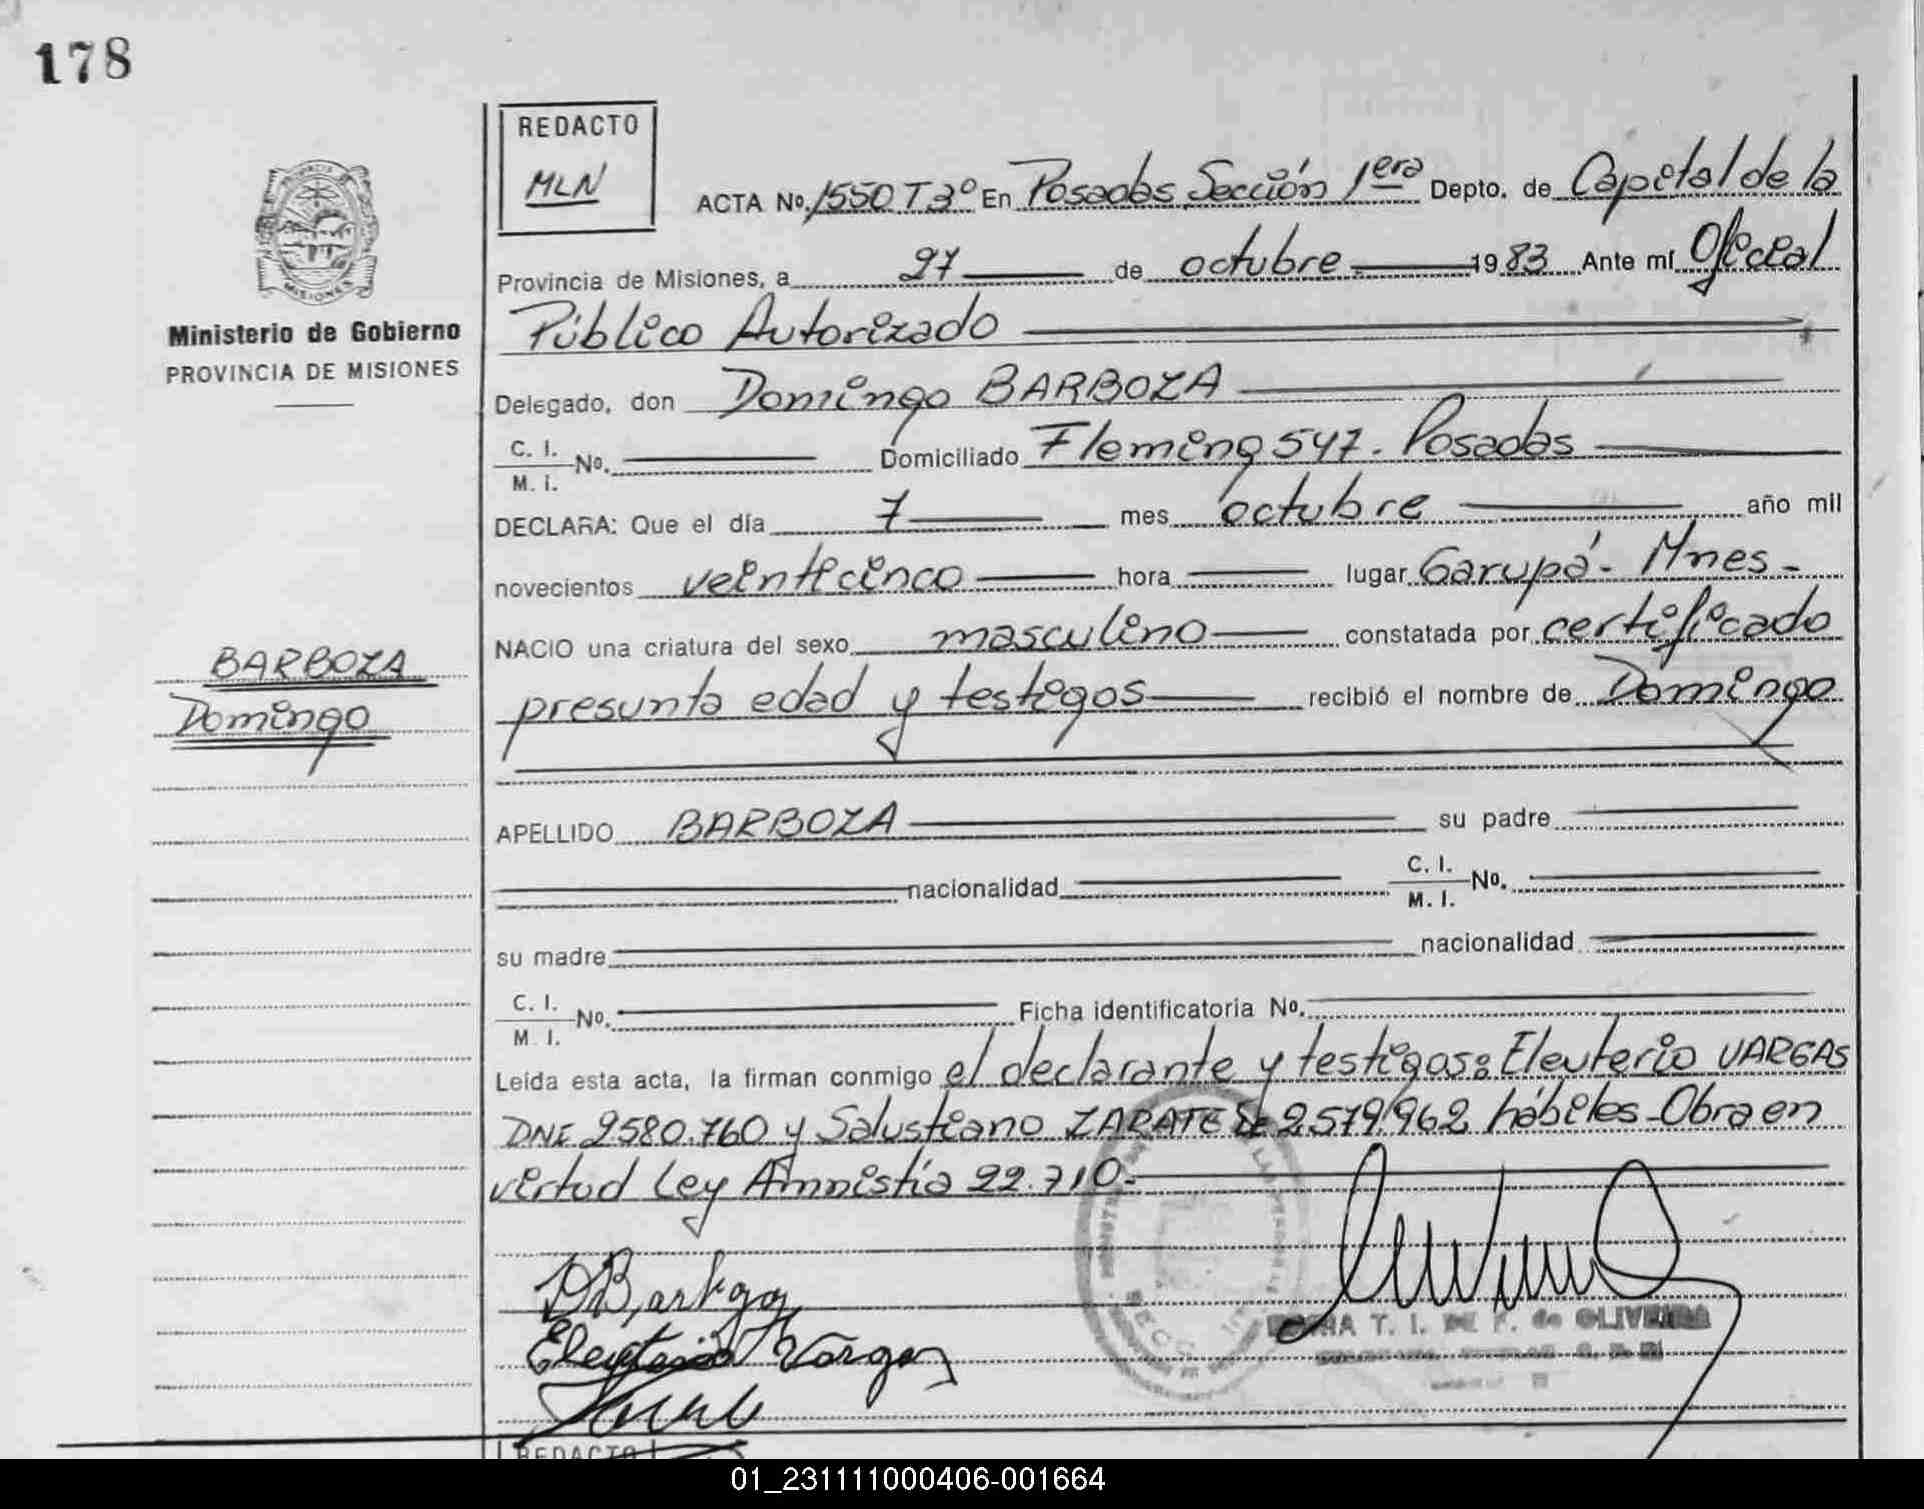 178
REDACTO
MLN
ACTA No. 1550 T3º En Posadas Sección 1era Depto. de Capital de la
Provincia de Misiones, a 27 de octubre 1983 Ante mí Oficial
Público Autorizado
Ministerio de Gobierno
PROVINCIA DE MISIONES
Delegado, don Domingo BARBOZA
C. I.
M. I. No. Domiciliado Fleming 547. Posadas
DECLARA: Que el día 7 mes octubre año mil
novecientos veinticinco hora lugar Garupá - Mnes -
NACIO una criatura del sexo masculino constatada por certificado
BARBOZA
Domingo
presunta edad y testigos recibió el nombre de Domingo
APELLIDO BARBOZA su padre
nacionalidad C. I.
M. I. No.
su madre nacionalidad
C. I.
M. I. No. Ficha identificatoria No.
Leída esta acta, la firman conmigo el declarante y testigos: Eleuterio VARGAS
DNI 2580.760 y Salustiano ZARATE 2.579.962 hábiles - Obra en
virtud Ley Amnistía 22.710.-
Eleuterio Vargas
T. I. DE F. de OLIVEIRA
REDACTO
01_231111000406-001664